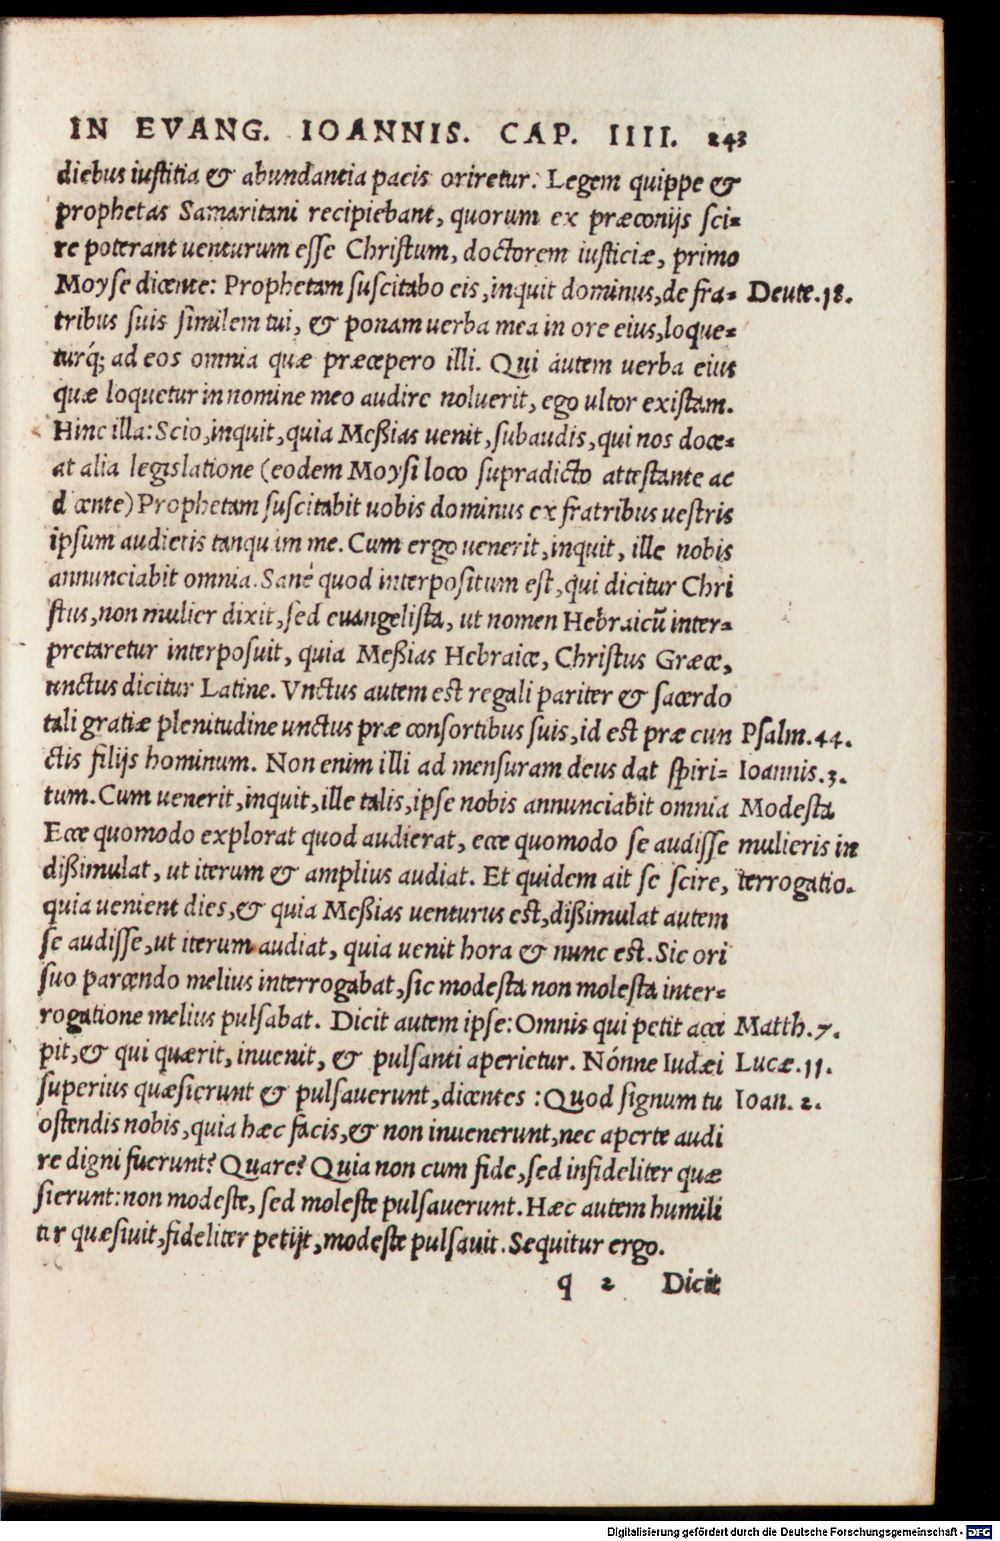 IN EVANG. IOANNIS. CAP. IIII. 243
diebus iustitia & abundantia pacis oriretur. Legem quippe &
prophetas Samaritani recipiebant, quorum ex præconijs sci=
re poterant uenturum esse Christum, doctorem iusticiæ, primo
Moyse dicente: Prophetam suscitabo eis, inquit dominus, de fra= Deute.18.
tribus suis similem tui, & ponam uerba mea in ore eius, loque=
turq́; ad eos omnia quæ præcepero illi. Qui autem uerba eius
quæ loquetur in nomine meo audire noluerit, ego ultor existam.
Hinc illa: Scio, inquit, quia Meßias uenit, subaudis, qui nos doce=
at alia legislatione (eodem Moysi loco supradicto attestante ac
dicente) Prophetam suscitabit uobis dominus ex fratribus uestris
ipsum audietis tanquam me. Cum ergo uenerit, inquit, ille nobis
annunciabit omnia. Sanè quod interpositum est, qui dicitur Chri
stus, non mulier dixit, sed euangelista, ut nomen Hebraicū inter=
pretaretur interposuit, quia Meßias Hebraice, Christus Græce,
unctus dicitur Latine. Vnctus autem est regali pariter & sacerdo
tali gratiæ plenitudine unctus præ consortibus suis, id est præ cun Psalm.44.
ctis filijs hominum. Non enim illi ad mensuram deus dat spiri= Ioannis.3.
tum. Cum uenerit, inquit, ille talis, ipse nobis annunciabit omnia Modesta
Ecce quomodo explorat quod audierat, ecce quomodo se audisse mulieris in
dißimulat, ut iterum & amplius audiat. Et quidem ait se scire, terrogatio.
quia uenient dies, & quia Meßias uenturus est, dißimulat autem
se audisse, ut iterum audiat, quia uenit hora & nunc est. Sic ori
suo parcendo melius interrogabat, sic modesta non molesta inter=
rogatione melius pulsabat. Dicit autem ipse: Omnis qui petit acci Matth.7.
pit, & qui quærit, inuenit, & pulsanti aperietur. Nónne Iudæi Lucæ.11.
superius quæsierunt & pulsauerunt, dicentes: Quod signum tu Ioan. 2.
ostendis nobis, quia hæc facis, & non inuenerunt, nec aperte audi
re digni fuerunt? Quare? Quia non cum fide, sed infideliter quæ
sierunt: non modeste, sed moleste pulsauerunt. Hæc autem humili
ter quæsiuit, fideliter petijt, modeste pulsauit. Sequitur ergo.
q 2 Dicit
Digitalisierung gefördert durch die Deutsche Forschungsgemeinschaft - DFG